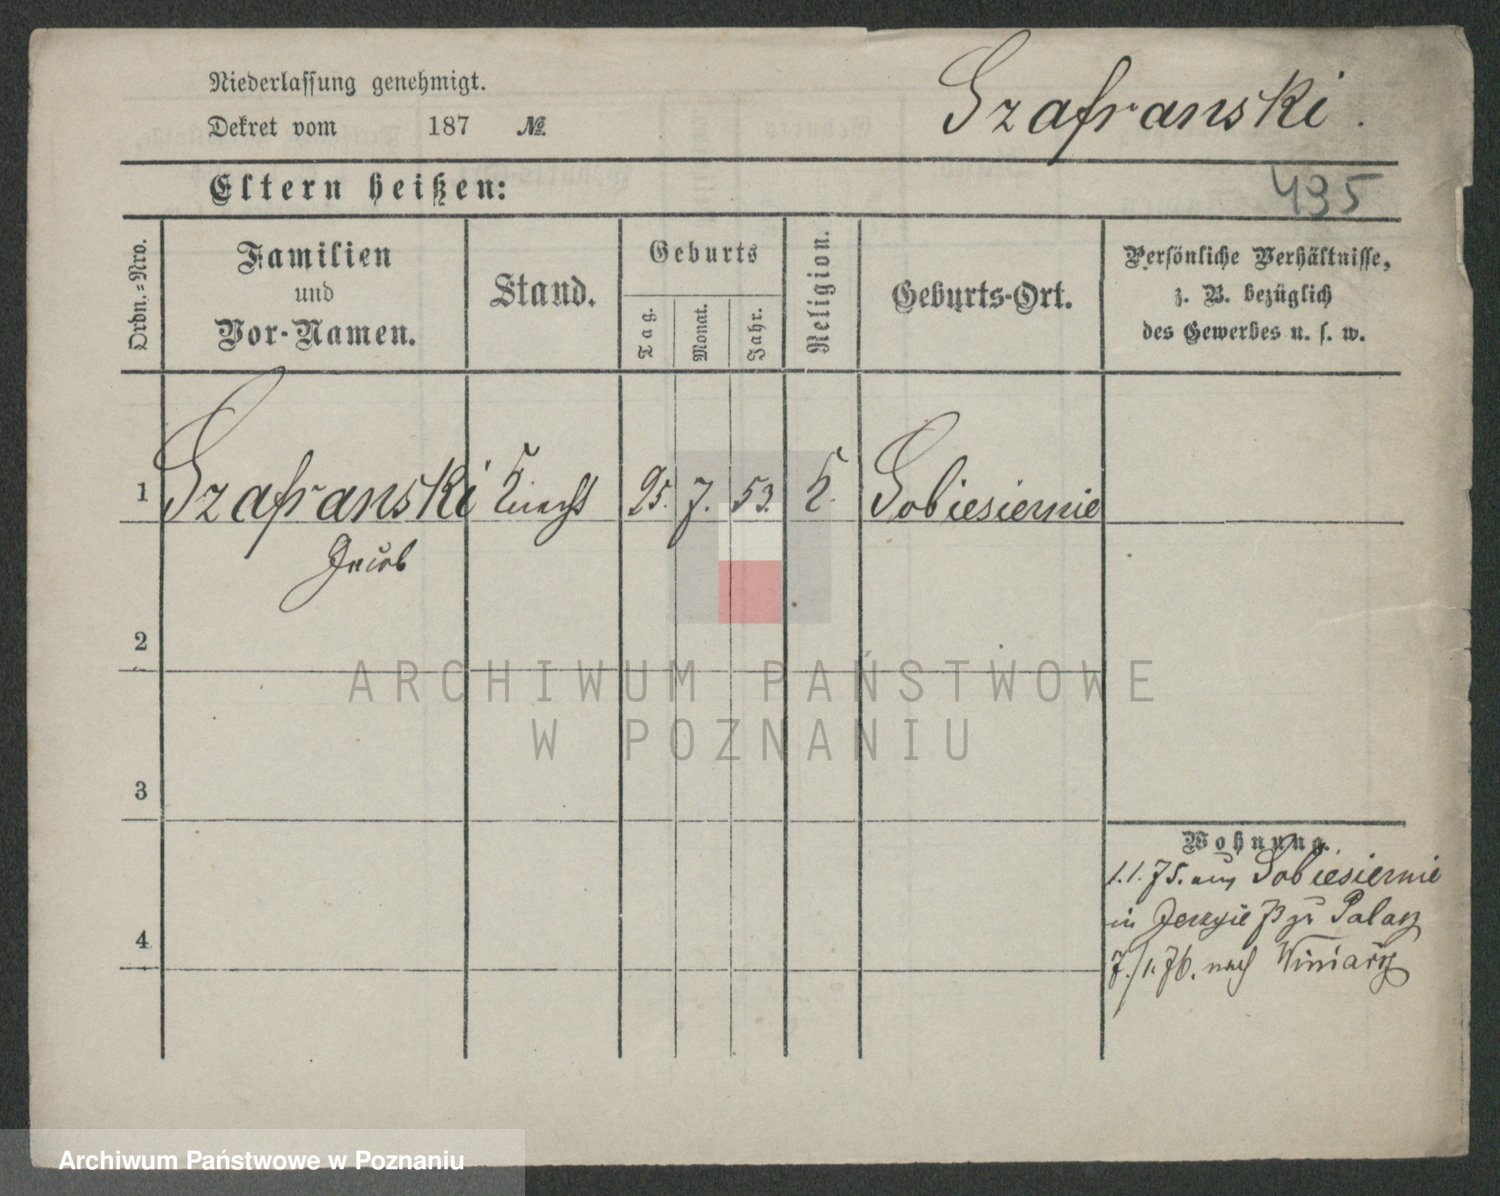 Niederlassung genehmigt.
Szafranski.
Dekret vom 187 №
Eltern heißen:
495
Ordn.-Nro.
Familien
und
Vor-Namen.
Stand.
Geburts
Tag.
Monat.
Jahr.
Religion.
Geburts-Ort.
Persönliche Verhältnisse,
z. B. bezüglich
des Gewerbes u. s. w.
1 Szafranski Knecht 25. 7. 53. K. Sobiesiernie
Jacob
2
ARCHIWUM PAŃSTWOWE
W POZNANIU
3
Wohnung.
1.1.75. aus Sobiesiernie
in zu
4
7./1.76. nach
Archiwum Państwowe w Poznaniu